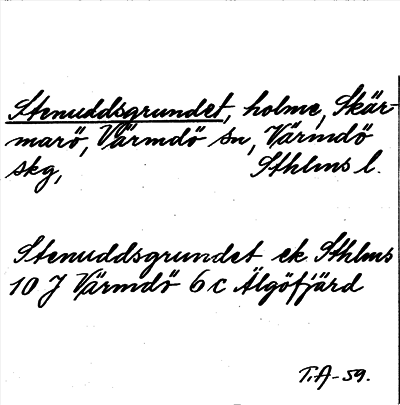 Stenuddsgrundet, holme, Skär-
marö, Värmdö sn, Värmdö
skg, Sthlms l.
Stenuddsgrundet ek Sthlms
10 J Värmdö 6 c Älgöfjärd
T.A-59.